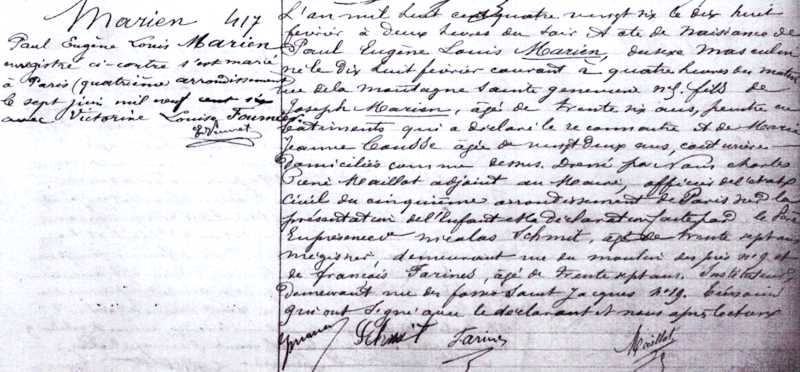 Marien 417
Paul Eugène Louis Marien
enregistré ci-contre s'est marié
à Paris (quatrième arrondissement
le sept juin mil neuf cent six
avec Victorine Louise Fournier
L'an mil huit cent quatre vingt six le dix huit
février à deux heures du soir Acte de naissance de
Paul Eugène Louis Marien, du sexe masculin
né le dix huit février courant à quatre heures du matin
rue de la montagne Sainte genevieve n° 5. fils de
Joseph Marien, âgé de trente six ans, peintre en
batiments qui a déclaré le reconnaitre et de Marie
Jeanne âgée de vingt deux ans, couturière
domiciliés comme dessus. Dressé par nous Charles
René Maillot adjoint au Maire, officier de l'état
Civil du cinquième arrondissement de Paris sur la
présentation de l'Enfant et la déclaration faite par le Père
En présence de Nicolas Schmit, âgé de trente sept ans
mégissier, demeurant rue du moulin des prés n° 9 et
de françois Tarines, âgé de trente sept ans.
demeurant rue des fossés Saint Jacques n° 19. témoins
qui ont signé avec le déclarant et nous après lecture
Schmit Tarines Maillot